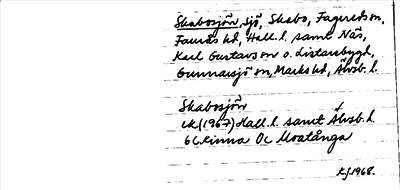 Skabosjön, sjö, Skabo, Fagereds sn,
Faurås hd, Hall. l. samt Näs,
Karl Gustavs sn o. Listarebygd,
Gunnarsjö sn, Marks hd, Älvsb. l.
Skabosjön
ek/(1967) Hall. l. samt Älvsb. l.
6C Kinna OC Moatånga
1968.